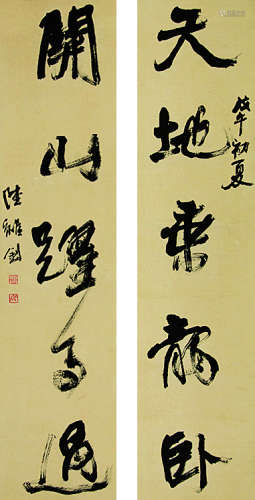 天地乘龍卧
戊午初夏
關山躍馬過
陸維釗